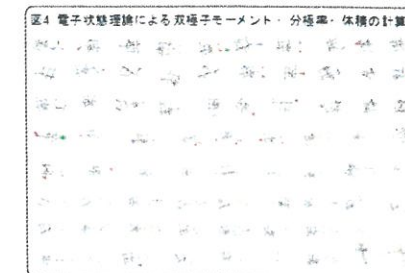 図4 電子状態理論による双極子モーメント・分極率・体積の計算